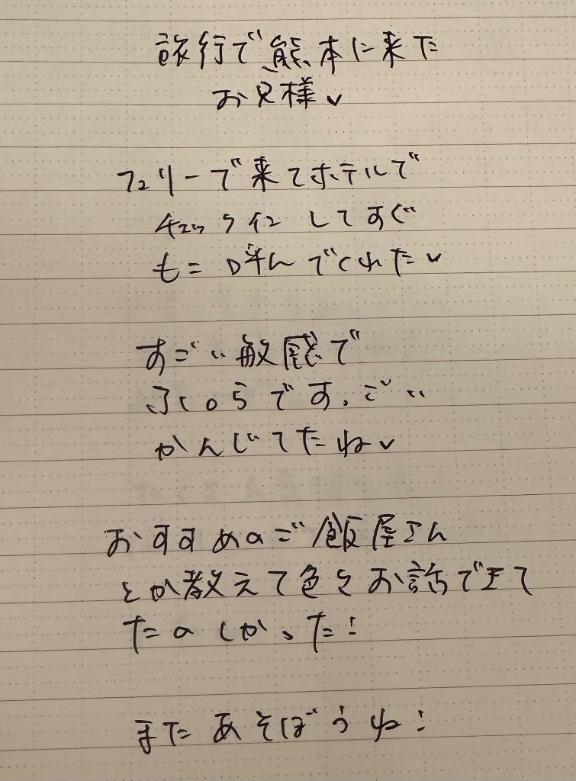 旅行で熊本に来た
お兄様✓
フェリーで来てホテルで
チェックインしてすぐ
も呼んでくれた✓
すごい敏感で
ふくらです。ごい
かんじてたね✓
おすすめのご飯屋さん
とか教えて色々お話できて
たのしかった!
またあそぼうね!